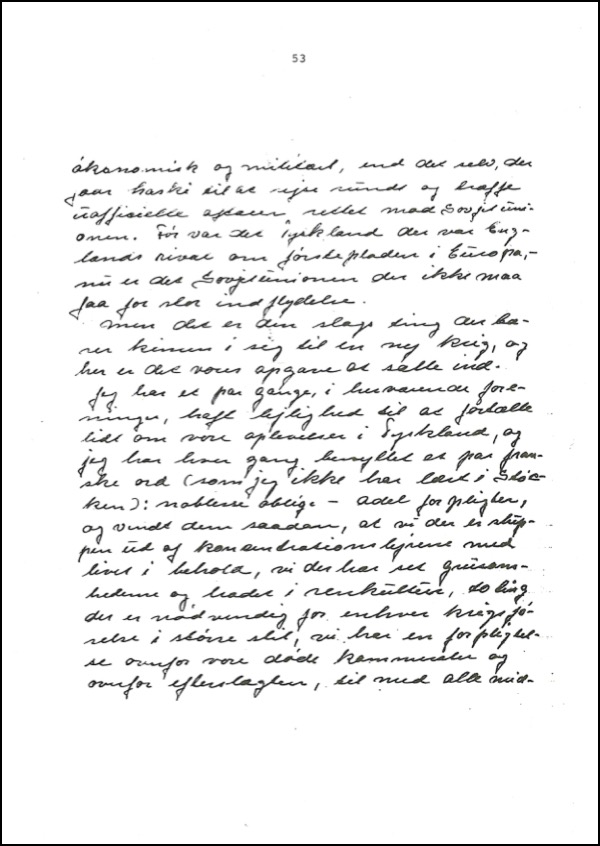 53
økonomisk og militært, end det selv, der
gaar straks til at rejse rundt og træffe
uofficielle aftaler rettet mod Sovjetuni-
onen. Før var det Tyskland der var Eng-
lands rival om førstepladsen i Europa,-
nu er det Sovjetunionen der ikke maa
faa for stor indflydelse.
Men det er den slags ting der bæ-
rer kimen i sig til en ny krig, og
her er det vores opgave at sætte ind.
Jeg har et par gange, i herværende fore-
ninger, haft lejlighed til at fortælle
lidt om vore oplevelser i Tyskland, og
jeg har hver gang benyttet et par fran-
ske ord (som jeg ikke har lært i Støc-
ken): noblesse oblige - adel forpligter,
og vendt dem saadan, at vi der er slup-
pen ud af koncentrationslejrene med
livet i behold, vi der har set grusom-
hederne og hadet i renkultur, to ting
der er nødvendig for enhver krigsfø-
relse i større stil, vi har en forpligtel-
se overfor vore døde kammerater og
overfor efterslægten, til med alle mid-